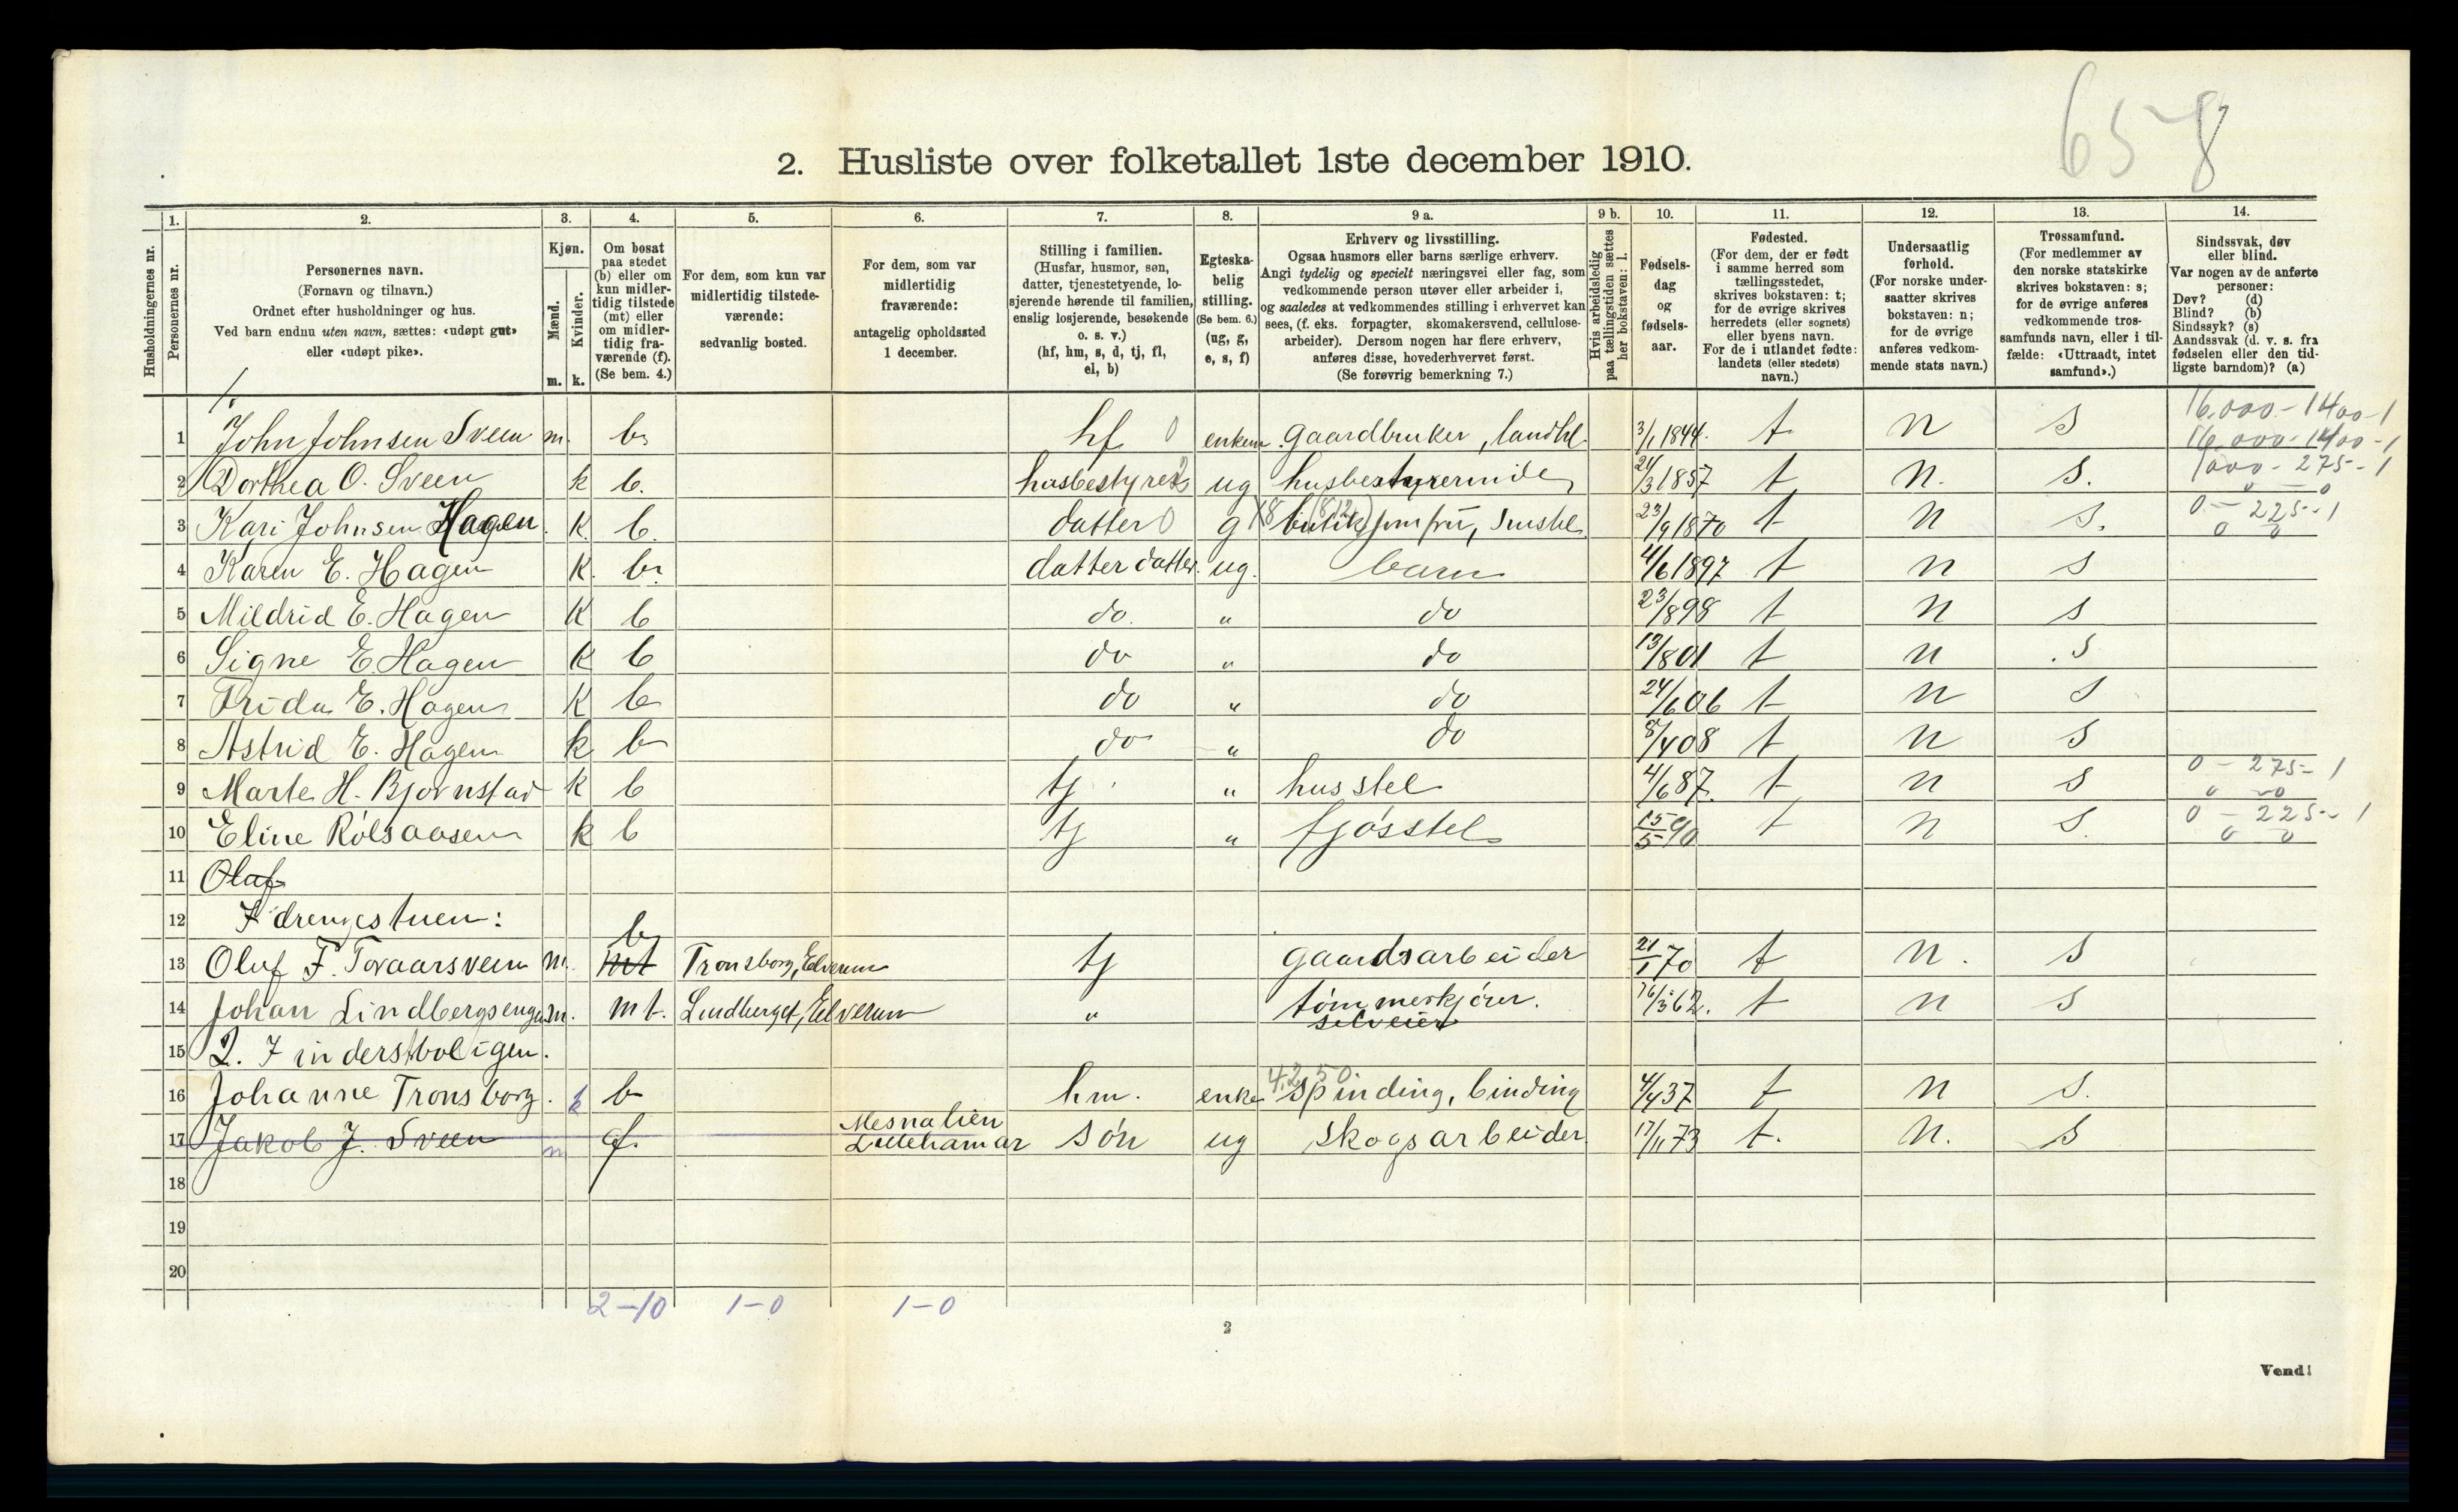 658
2. Husliste over folketallet 1ste december 1910.
Husholdningernes nr.
1. Personernes nr.
2. Personernes navn. (Fornavn og tilnavn.) Ordnet efter husholdninger og hus. Ved barn endnu uten navn, sættes: «udøpt gut» eller «udøpt pike».
3. Kjøn. Mænd. m. Kvinder. k.
4. Om bosat paa stedet (b) eller om kun midlertidig tilstede (mt) eller om midlertidig fraværende (f). (Se bem. 4.)
5. For dem, som kun var midlertidig tilstedeværende: sedvanlig bosted.
6. For dem, som var midlertidig fraværende: antagelig opholdssted 1 december.
7. Stilling i familien. (Husfar, husmor, søn, datter, tjenestetyende, losjerende hørende til familien, enslig losjerende, besøkende o. s. v.) (hf, hm, s, d, tj, fl, el, b)
8. Egteskabelig stilling. (Se bem. 6.) (ug, g, e, s, f)
9 a. Erhverv og livsstilling. Ogsaa husmors eller barns særlige erhverv. Angi tydelig og specielt næringsvei eller fag, som vedkommende person utøver eller arbeider i, og saaledes at vedkommendes stilling i erhvervet kan sees, (f. eks. forpagter, skomakersvend, cellulosearbeider). Dersom nogen har flere erhverv, anføres disse, hovederhvervet først. (Se forøvrig bemerkning 7.)
9 b. Hvis arbeidsledig paa tællingstiden sættes her bokstaven: l.
10. Fødselsdag og fødselsaar.
11. Fødested. (For dem, der er født i samme herred som tællingsstedet, skrives bokstaven: t; for de øvrige skrives herredets (eller sognets) eller byens navn. For de i utlandet fødte: landets (eller stedets) navn.)
12. Undersaatlig forhold. (For norske undersaatter skrives bokstaven: n; for de øvrige anføres vedkommende stats navn.)
13. Trossamfund. (For medlemmer av den norske statskirke skrives bokstaven: s; for de øvrige anføres vedkommende trossamfunds navn, eller i tilfælde: «Uttraadt, intet samfund».)
14. Sindssvak, døv eller blind. Var nogen av de anførte personer: Døv? (d) Blind? (b) Sindssyk? (s) Aandssvak (d. v. s. fra fødselen eller den tidligste barndom)? (a)
1.
1 John Johnsen Sveen m. b. hf 0 enkem. gaardbruker, landhl. 3/1 1844. t n s 16.000-1400-1 16.000-1400-1
2 Dorthea O. Sveen k b. husbestyre ug husbestyrerinde 24/3 1857 t n. s. 1000-275-1 0 0
3 Kari Johnsen Hagen. k. b. datter 0 g butik 23/9 1870 t n s. 0-225-1 0 0
4 Karen E. Hagen k. b. datter datter. ug. barn 4/6 1897 t n s
5 Mildrid E. Hagen k b do. " do 23/898 t n s
6 Signe E. Hagen k b do " do 13/801 t n s
7 Frida E. Hagen k b do " do 24/606 t n s
8 Astrid E. Hagen k b do " do 8/408 t n s
9 Marte H. Bjørnstad k b tj " husstel 4/687. t n s 0-275-1 0-0
10 Eline Rølsaasen k b tj " fjøsstel 15/5 90 t n s. 0-225-1 0 0
11 Olaf
12 I drengestuen:
13 Oluf F. Toraarsveen m. mt b Tronsborg, Elverum tj gaardsarbeider 21/1 70 t n. s
14 Johan Lindbergsengen m. mt. Lindberget, Elverum " tømmerkjører. selveier 16/362. t n s
15 2. I inderstboligen.
16 Johanne Tronsborg. k b hm. enke 4250 spinding, binding 4/437 t n s.
17 Jakob J. Sveen m f. Mesnalien Lillehamar søn ug skogsarbeider 17/1173 t. n. s
18
19
20
2-10 1-0 1-0
2
Vend!